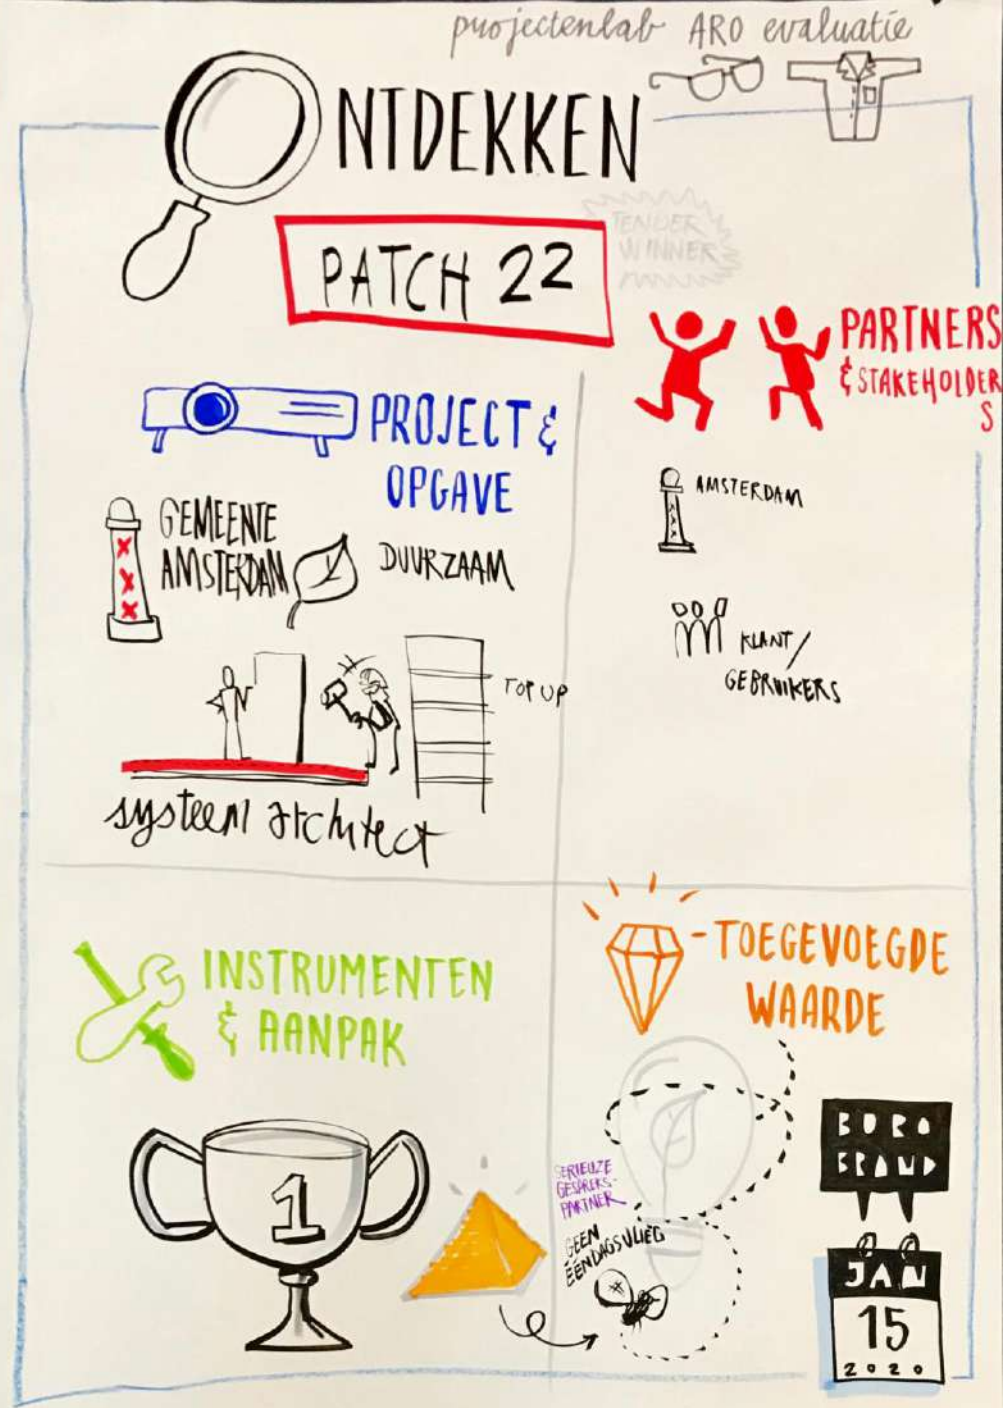 projectenlab ARO evaluatie
ONTDEKKEN
TENDER
WINNER
PATCH 22
PARTNERS
& STAKEHOLDER
S
PROJECT &
OPGAVE
GEMEENTE
AMSTERDAM
DUURZAAM
XXX
TOP UP
systeem architect
AMSTERDAM
XXX
KLANT/
GEBRUIKERS
INSTRUMENTEN
& AANPAK
1
-TOEGEVOEGDE
WAARDE
SERIEUZE
GESPREKS-
PARTNER
GEEN
ÉÉNDAGSVLIEG
BURO
BRAND
JAN
15
2020